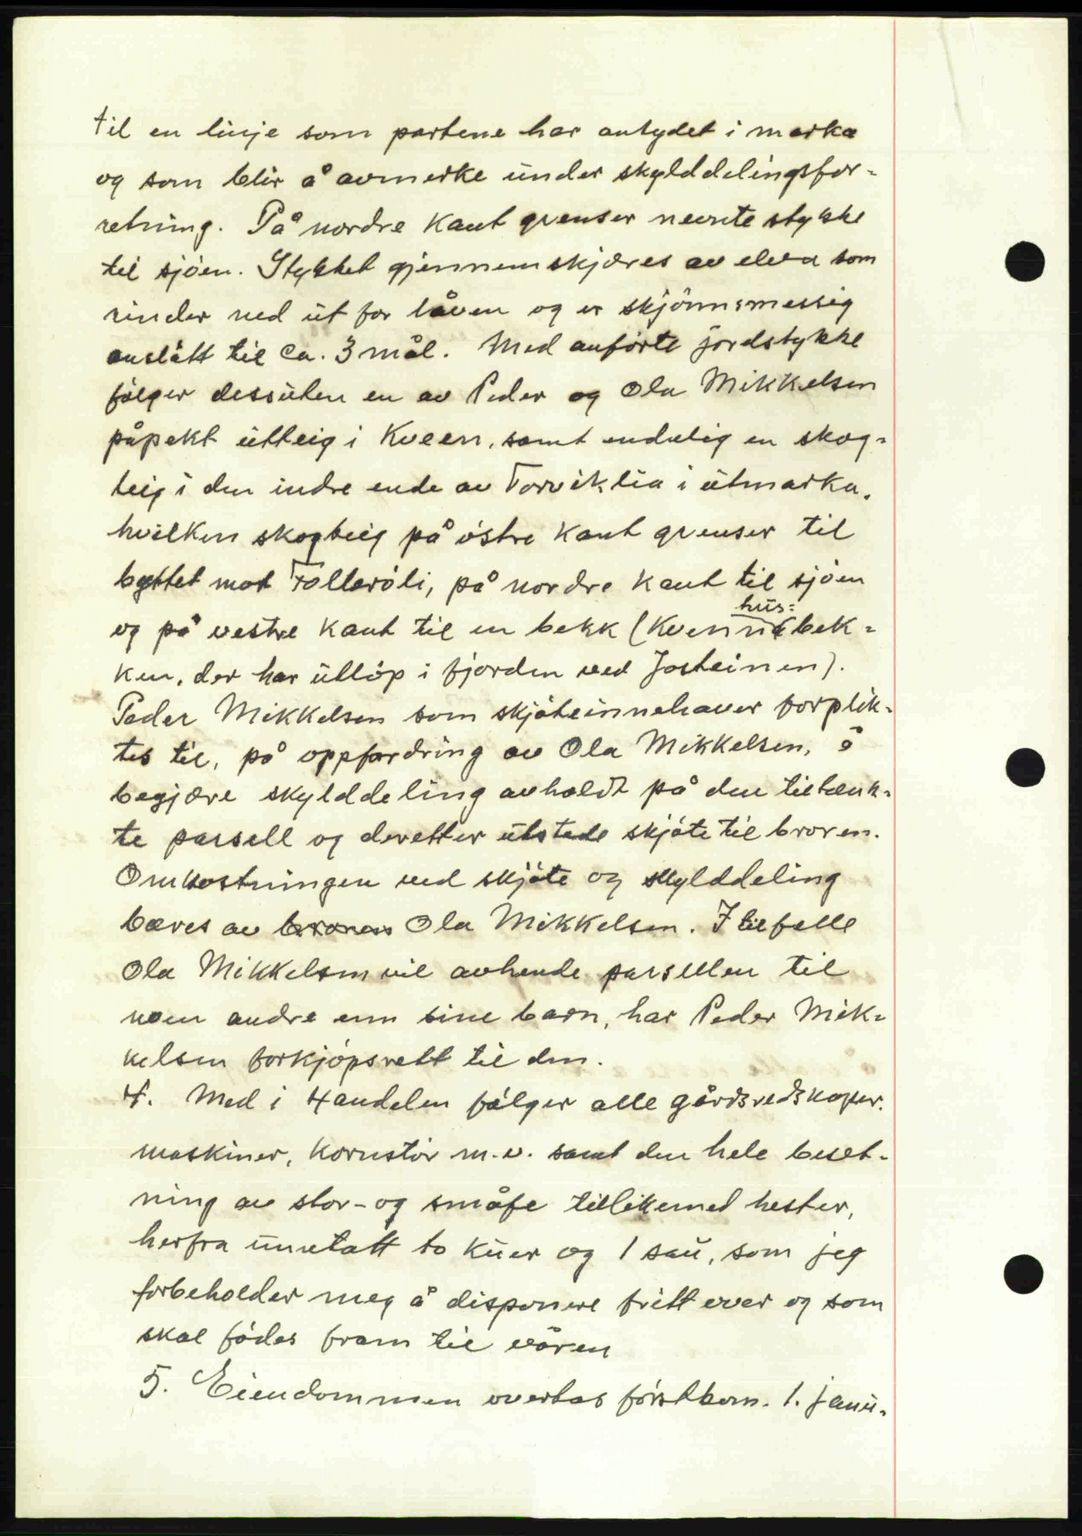 til en linje som partene har antydet i marka
og som blir å avmerke under skylddelingsfor-
retning. På nordre kant grenser nevnte stykke
til sjøen. Stykket gjennemskjæres av elva som
rinder ned ut for låven og er skjønnsmessig
anslått til ca. 3 mål. Med anførte jordstykke
følger dessuten en av Peder og Ola Mikkelsen
påpekt utteig i Kveen, samt endelig en skog-
teig i den indre ende av Torviklia i utmarka,
hvilken skogteig på østre kant grenser til
byttet mot Tollerøli, på nordre kant til sjøen
hus=
og på vestre kant til en bekk (Kvennbek-
ken, der har utløp i fjorden ved Josteinen).
Peder Mikkelsen som skjøteinnehaver forplik-
tes til, på oppfordring av Ola Mikkelsen, å
begjære skylddeling avholdt på den tiltenk-
te parsell og deretter utstede skjøte til broren.
Omkostningen ved skjøte og skylddeling
bæres av Ola Mikkelsen. I tilfelle
Ola Mikkelsen vil avhende parsellen til
noen andre enn sine barn, har Peder Mik-
kelsen forkjøpsrett til den.
4. Med i Handelen følger alle gårdsredskaper,
maskiner, kornstør m.v. samt den hele beset-
ning av stor- og småfe tillikemed hester,
herfra unntatt to kuer og 1 sau, som jeg
forbeholder meg å disponere fritt over og som
skal fødes fram til våren
5. Eiendommen overtas førstkom. 1. janu-